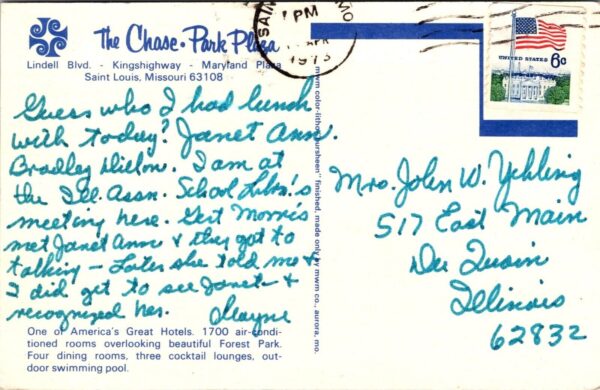 The Chase-Park Plaza
Lindell Blvd. - Kingshighway - Maryland Plaza
Saint Louis, Missouri 63108
SAIN MO
PM
APR
1973
UNITED STATES 6c
Guess who I had lunch
with today? Janet Ann
Bradley Dielow. I am at
the Ill. Assn. School Libn's.
meeting here. Gert Morris
met Janet Ann & they got to
talking – Later she told me &
I did get to see Janet &
recognized her.
Mrs. John W. Yehling
517 East Main
Du Quoin
Illinois
62832
mwm color-litho finished, made only by mwm co., aurora, mo.
One of America's Great Hotels. 1700 air-condi-
tioned rooms overlooking beautiful Forest Park.
Four dining rooms, three cocktail lounges, out-
door swimming pool.